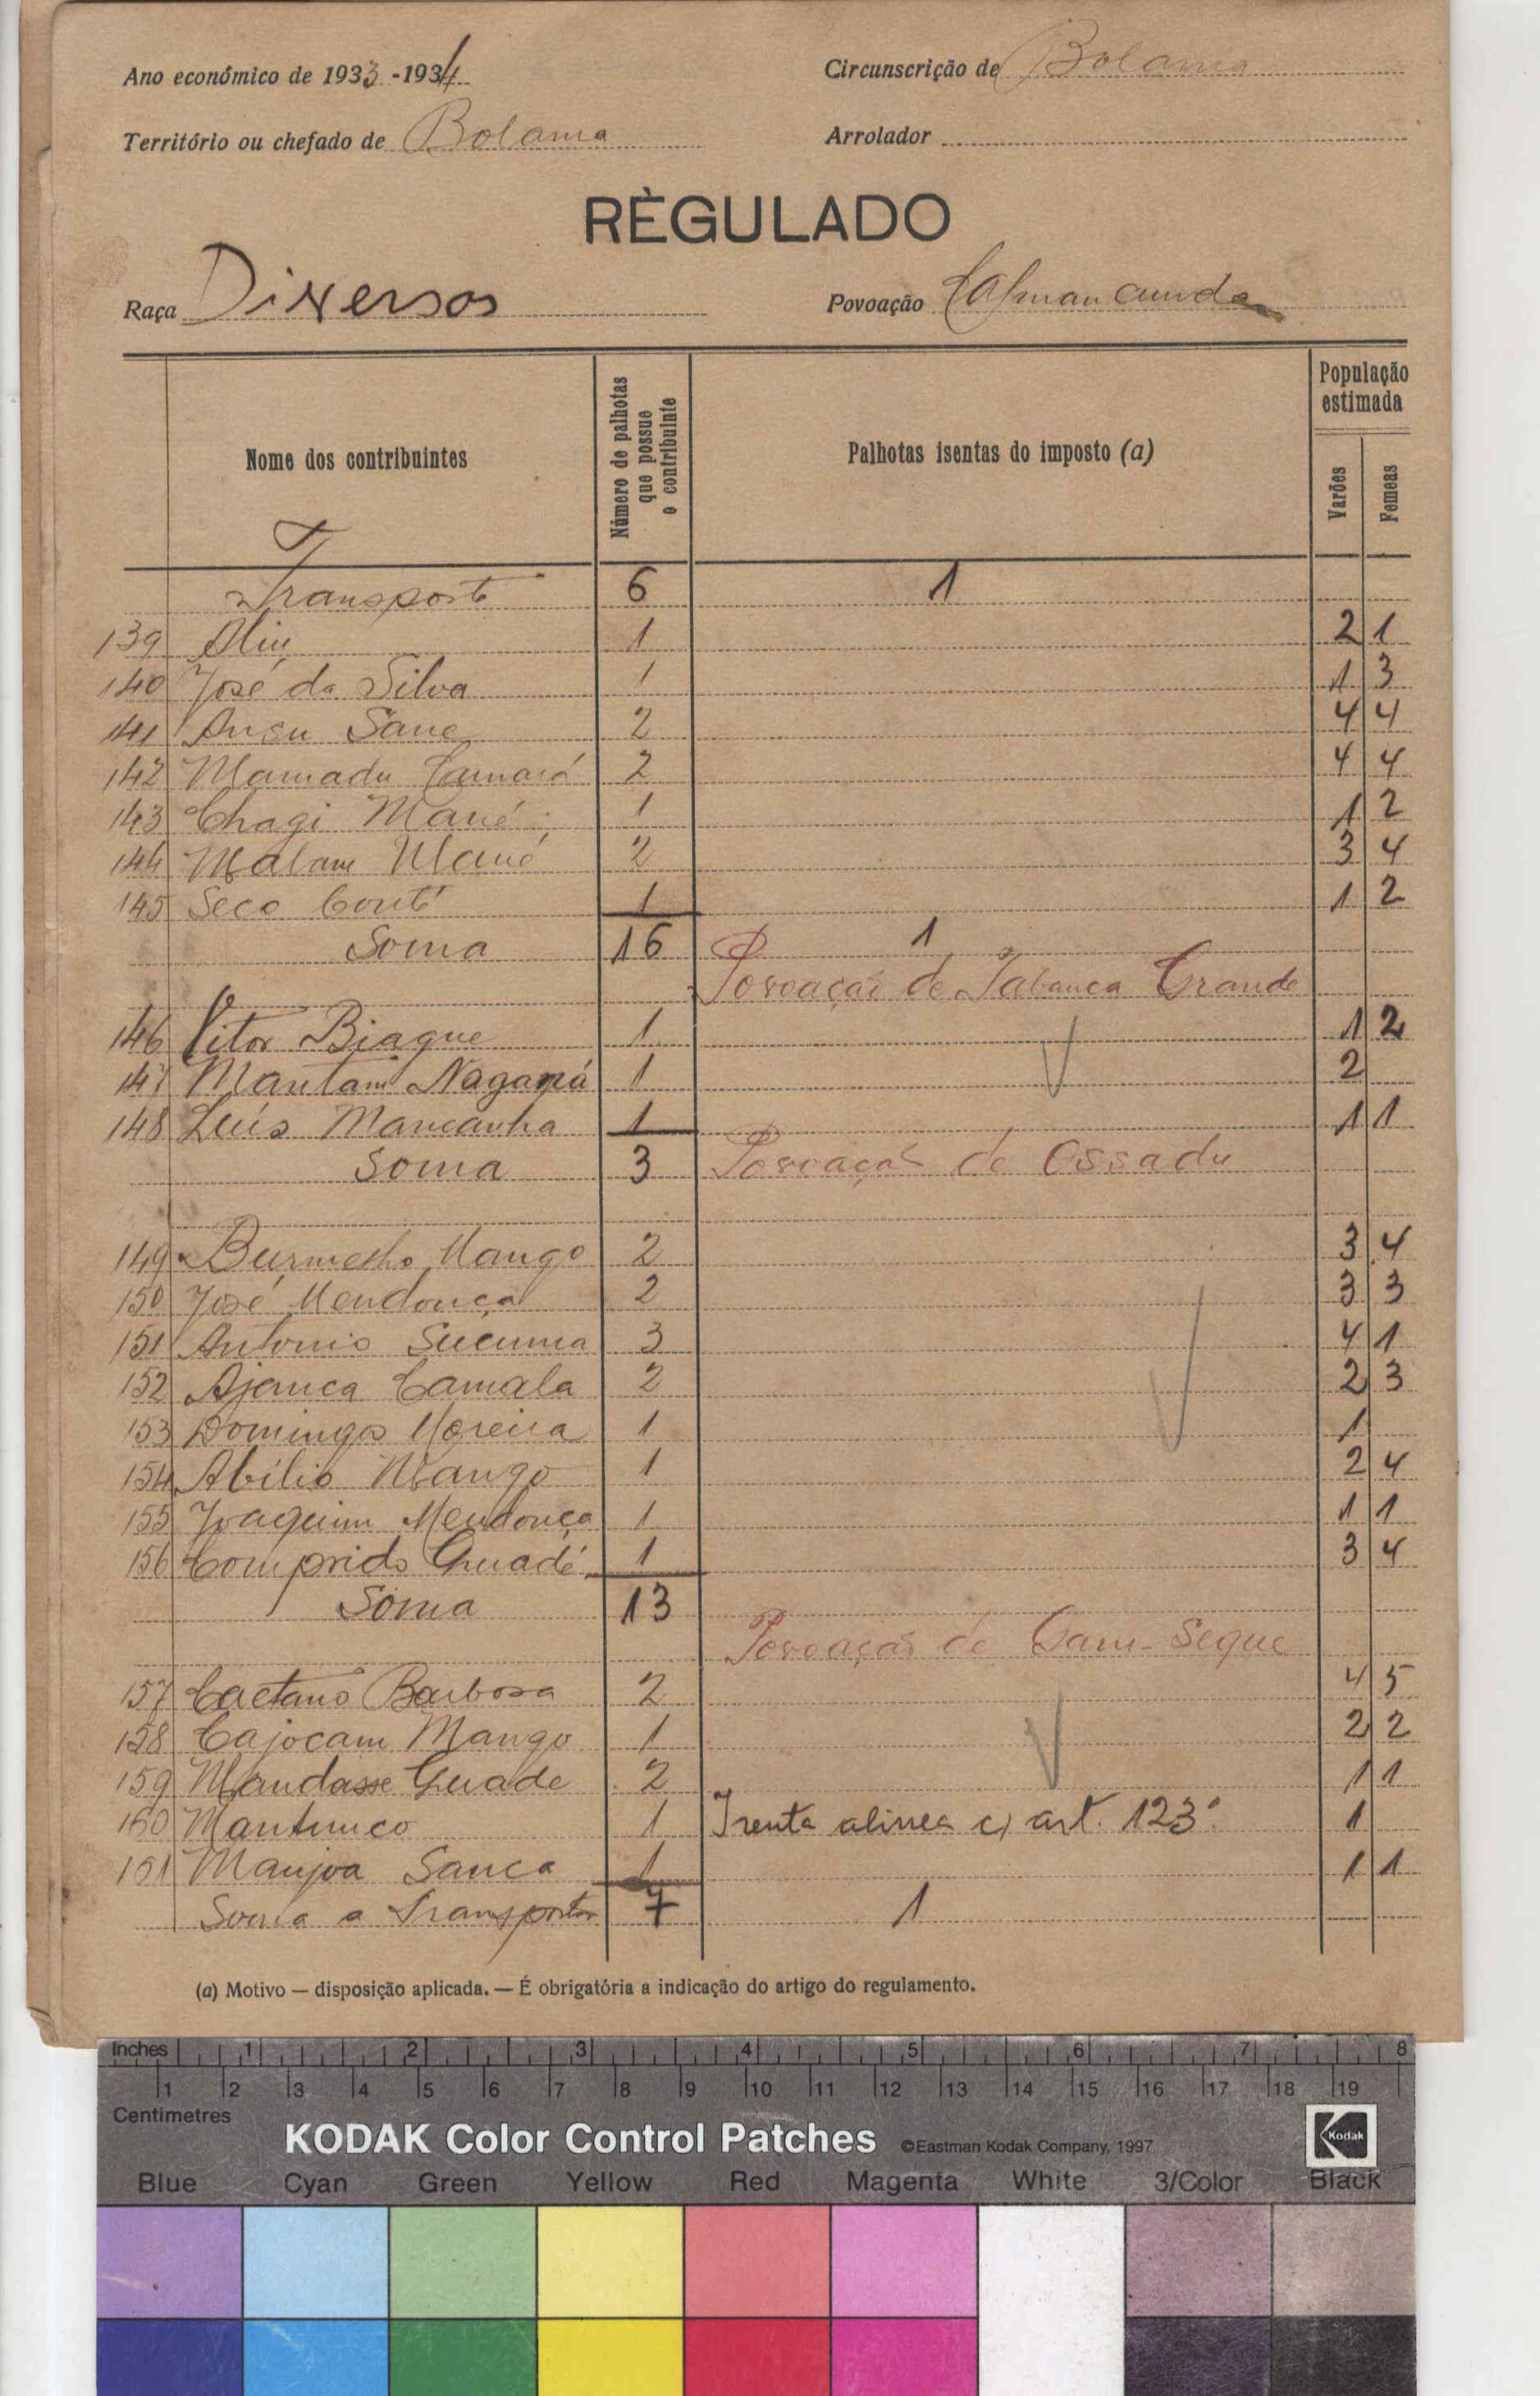 Ano económico de 1933-1934 Circunscrição de Bolama
Território ou chefado de Bolama Arrolador
RÈGULADO
Raça Diversos Povoação
Nome dos contribuintes Número de palhotas que possue o contribuinte Palhotas isentas do imposto (a) População estimada Varões Femeas
Transporte 6 1
139 Aliu 1 2 1
140 José da Silva 1 1 3
141 Ansu Sane 2 4 4
142 Mamadu Camará 2 4 4
143 Chagi Mané 1 1 2
144 Malam Mané 2 3 4
145 Seco Conté 1 1 2
Soma 16 1
Povoação de Tabanca Grande
146 Vitor Biague 1 1 2
147 Mantam Naganá 1 2
148 Luís Mancanha 1 1 1
Soma 3 Povoação de Ossadu
149 Mango 2 3 4
150 José Mendonça 2 3 3
151 Antonio Sucuma 3 4 1
152 Ajanca Camala 2 2 3
153 Domingos Moreira 1 1
154 Abílio Mango 1 2 4
155 Joaquim Mendonça 1 1 1
156 Comprido Quadé 1 3 4
Soma 13
Povoação de Gam-Seque
157 Caetano Barbosa 2 4 5
158 Cajocam Mango 1 2 2
159 Mandasse Quade 2 1 1
160 Mantunco 1 Isenta alinea c) art. 123º 1
161 Manjoa Sanca 1 1 1
Soma a Transportar 7 1
(a) Motivo — disposição aplicada. — É obrigatória a indicação do artigo do regulamento.
Inches 1 2 3 4 5 6 7 8
1 2 3 4 5 6 7 8 9 10 11 12 13 14 15 16 17 18 19
Centimetres
KODAK Color Control Patches ©Eastman Kodak Company, 1997 Kodak
Blue Cyan Green Yellow Red Magenta White 3/Color Black